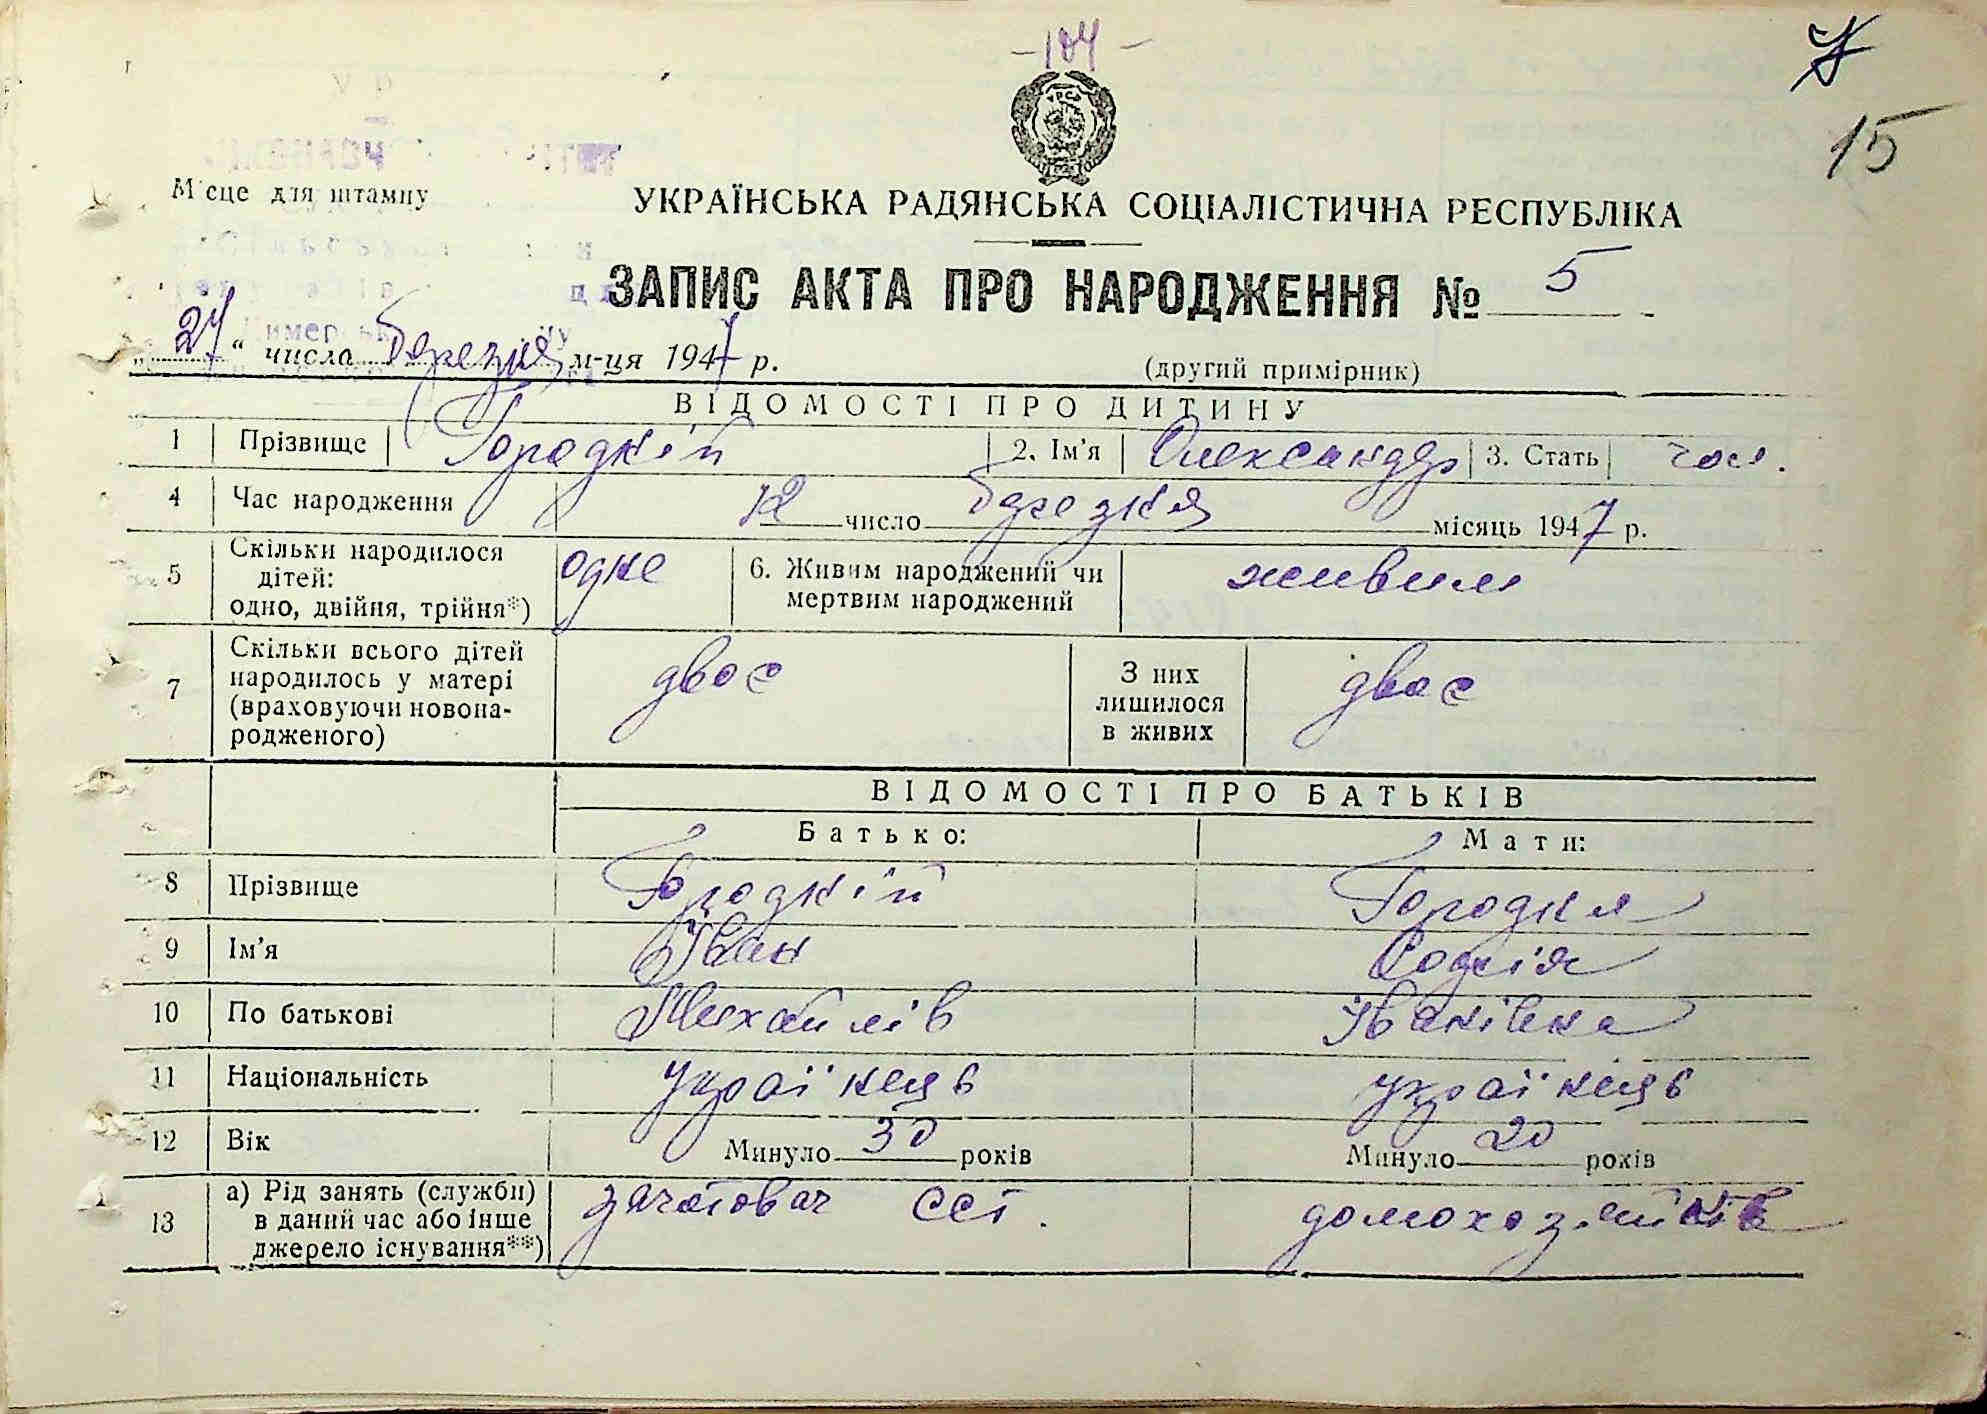 - 104 -
15
УРСР
Місце для штампу
УКРАЇНСЬКА РАДЯНСЬКА СОЦІАЛІСТИЧНА РЕСПУБЛІКА
ЗАПИС АКТА ПРО НАРОДЖЕННЯ № 5
„27“ числа березня м-ця 1947 р. (другий примірник)
ВІДОМОСТІ ПРО ДИТИНУ
1 Прізвище Городкій 2. Ім'я Олександр 3. Стать чол.
4 Час народження 12 число березня місяць 1947 р.
5 Скільки народилося дітей: одно, двійня, трійня*) одне 6. Живим народжений чи мертвим народжений живим
7 Скільки всього дітей народилось у матері (враховуючи новонародженого) двоє З них лишилося в живих двоє
ВІДОМОСТІ ПРО БАТЬКІВ
Батько: Мати:
8 Прізвище Городкій Городкя
9 Ім'я Іван Софія
10 По батькові Михайлів Іванівна
11 Національність українець українець
12 Вік Минуло 30 років Минуло 20 років
13 а) Рід занять (служби) в даний час або інше джерело існування**) заготовач ССТ. домохазяйка